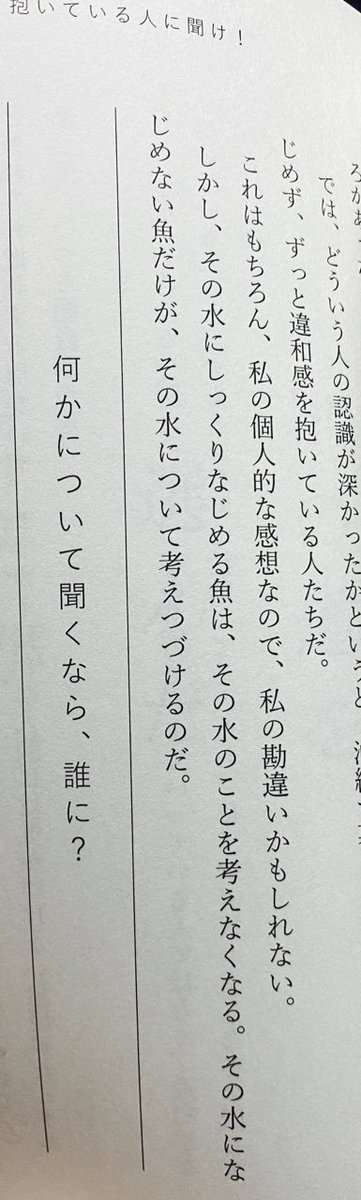 抱いている人に聞け！
では、どういう人の認識が深かったかというと
じめず、ずっと違和感を抱いている人たちだ。
これはもちろん、私の個人的な感想なので、私の勘違いかもしれない。
しかし、その水にしっくりなじめる魚は、その水のことを考えなくなる。その水にな
じめない魚だけが、その水について考えつづけるのだ。
何かについて聞くなら、誰に？